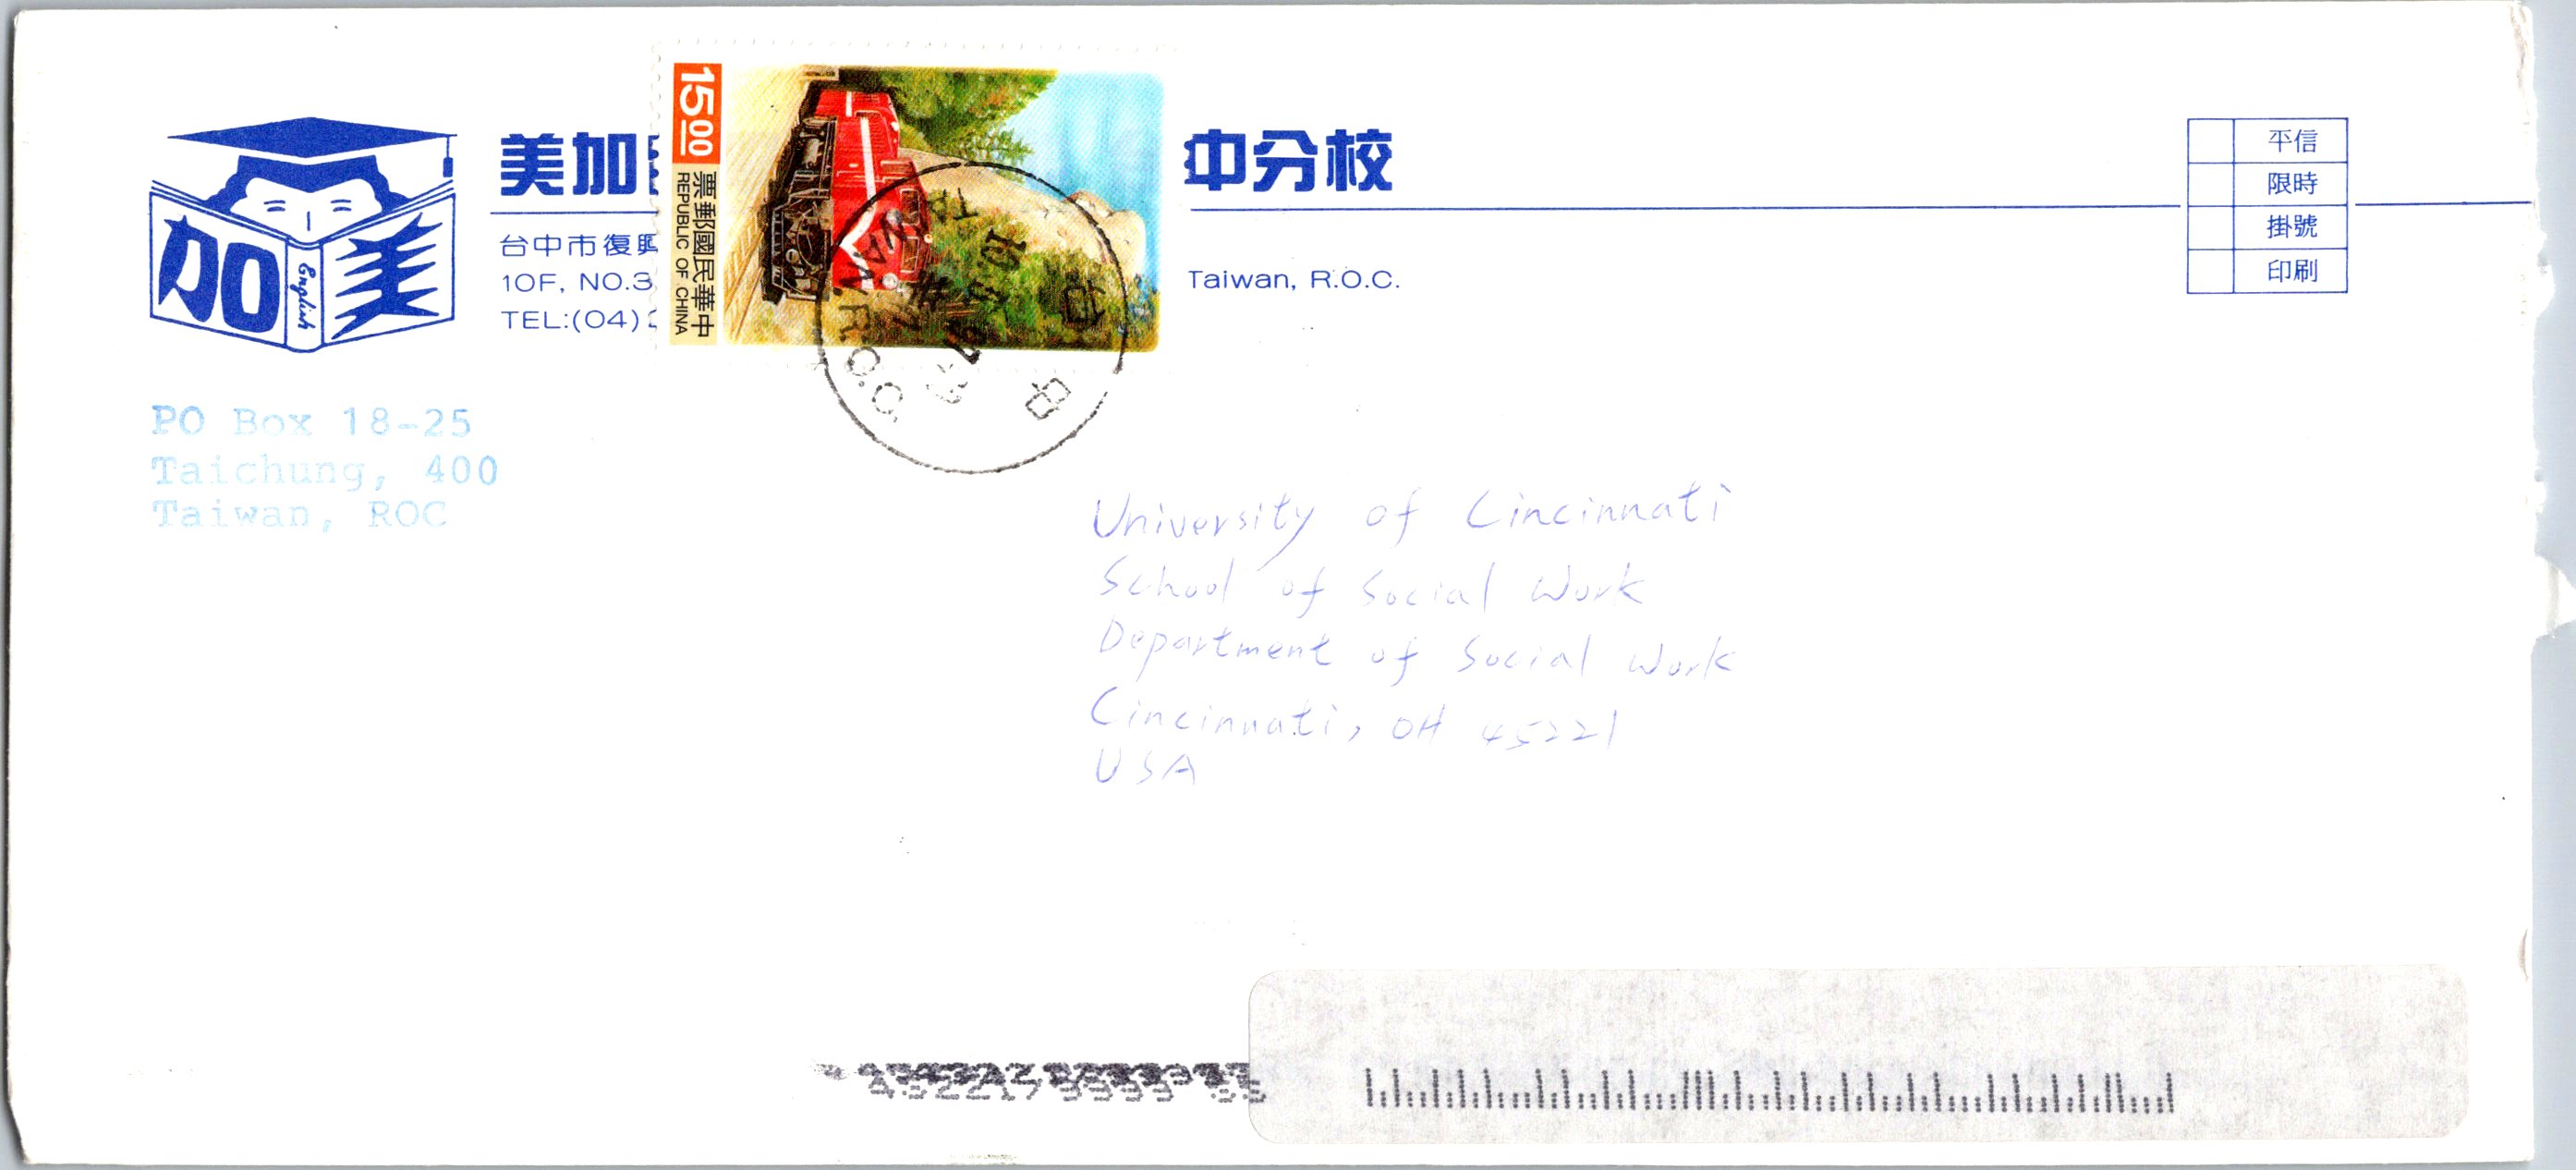 美加 中分校
台中市復興
10F, NO.3 Taiwan, R.O.C.
TEL:(04)
加 English 美
15.00
中華民國郵票
REPUBLIC OF CHINA
平信
限時
掛號
印刷
PO Box 18-25
Taichung, 400
Taiwan, ROC
University of Cincinnati
School of Social Work
Department of Social Work
Cincinnati, OH 45221
USA